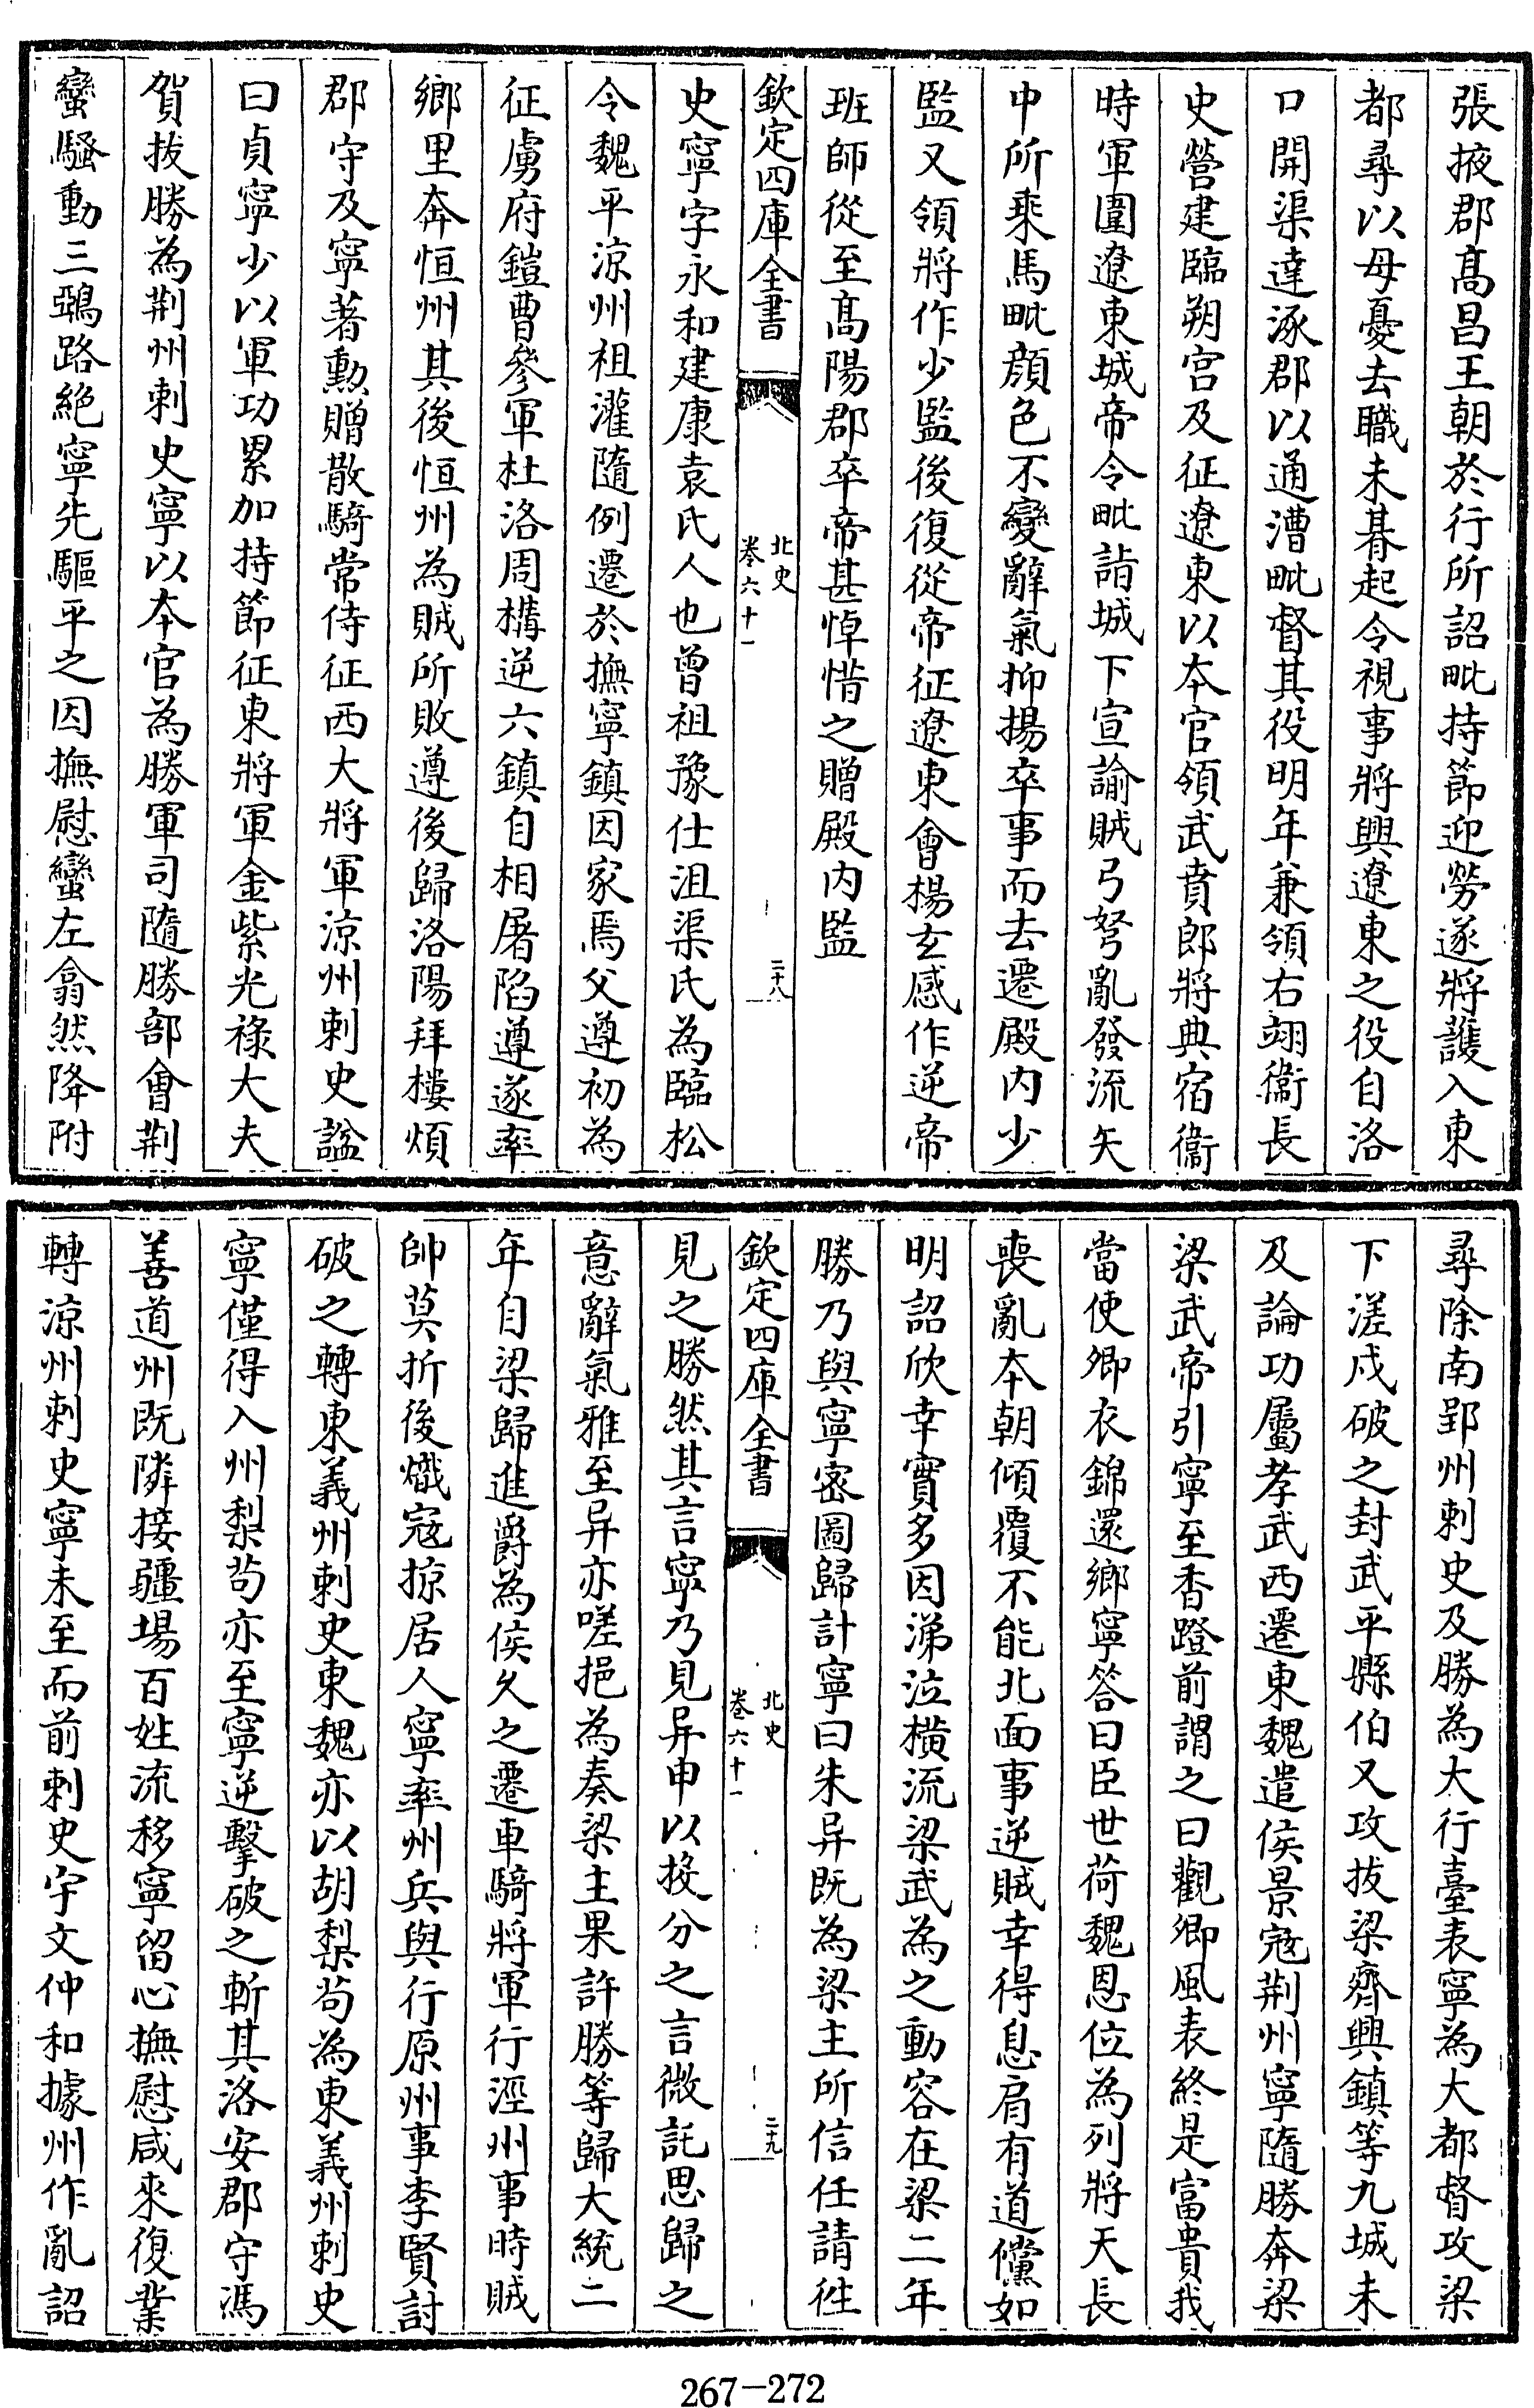 張掖郡髙昌王朝於行所詔毗持節迎勞遂將䕶入東
都尋以母憂去職未朞起令視事將興遼東之役自洛
口開渠達涿郡以通漕毗督其役明年兼領右翊衞長
史營建臨朔宫及征遼東以本官領武賁郎將典宿衞
時軍圍遼東城帝令毗詣城下宣諭賊弓弩亂發流矢
中所乘馬毗顔色不變辭氣抑揚卒事而去遷殿内少
監又領將作少監後復從帝征遼東會楊玄感作逆帝
班師從至髙陽郡卒帝甚悼惜之贈殿内監
欽定四庫全書
北史
卷六十一
二十八
史寧字永和建康袁氏人也曾祖豫仕沮渠氏為臨松
令魏平涼州祖灌隨例遷於撫寧鎮因家焉父遵初為
征虜府鎧曹參軍杜洛周構逆六鎮自相屠陷遵遂率
鄉里奔恒州其後恒州為賊所敗遵後歸洛陽拜樓煩
郡守及寧著勲贈散騎常侍征西大將軍涼州刺史諡
曰貞寧少以軍功累加持節征東將軍金紫光祿大夫
賀拔勝為荆州刺史寧以本官為勝軍司隨勝部會荆
蠻騷動三鵶路絶寧先驅平之因撫慰蠻左翕然降附
尋除南郢州刺史及勝為大行臺表寧為大都督攻梁
下溠戍破之封武平縣伯又攻拔梁齊興鎮等九城未
及論功屬孝武西遷東魏遣侯景冦荆州寧隨勝奔梁
梁武帝引寧至香蹬前謂之曰觀卿風表終是富貴我
當使卿衣錦還鄉寧答曰臣世荷魏恩位為列將天長
喪亂本朝傾覆不能北面事逆賊幸得息肩有道儻如
明詔欣幸實多因涕泣横流梁武為之動容在梁二年
勝乃與寧密圖歸計寧曰朱异既為梁主所信任請徃
欽定四庫全書
北史
卷六十一
二十九
見之勝然其言寧乃見异申以投分之言微託思歸之
意辭氣雅至异亦嗟挹為奏梁主果許勝等歸大統二
年自梁歸進爵為侯久之遷車騎將軍行涇州事時賊
帥莫折後熾冦掠居人寧率州兵與行原州事李賢討
破之轉東義州刺史東魏亦以胡梨茍為東義州刺史
寧僅得入州梨茍亦至寧逆擊破之斬其洛安郡守馮
善道州既隣接疆場百姓流移寧留心撫慰咸來復業
轉涼州刺史寧未至而前刺史宇文仲和據州作亂詔
267-272